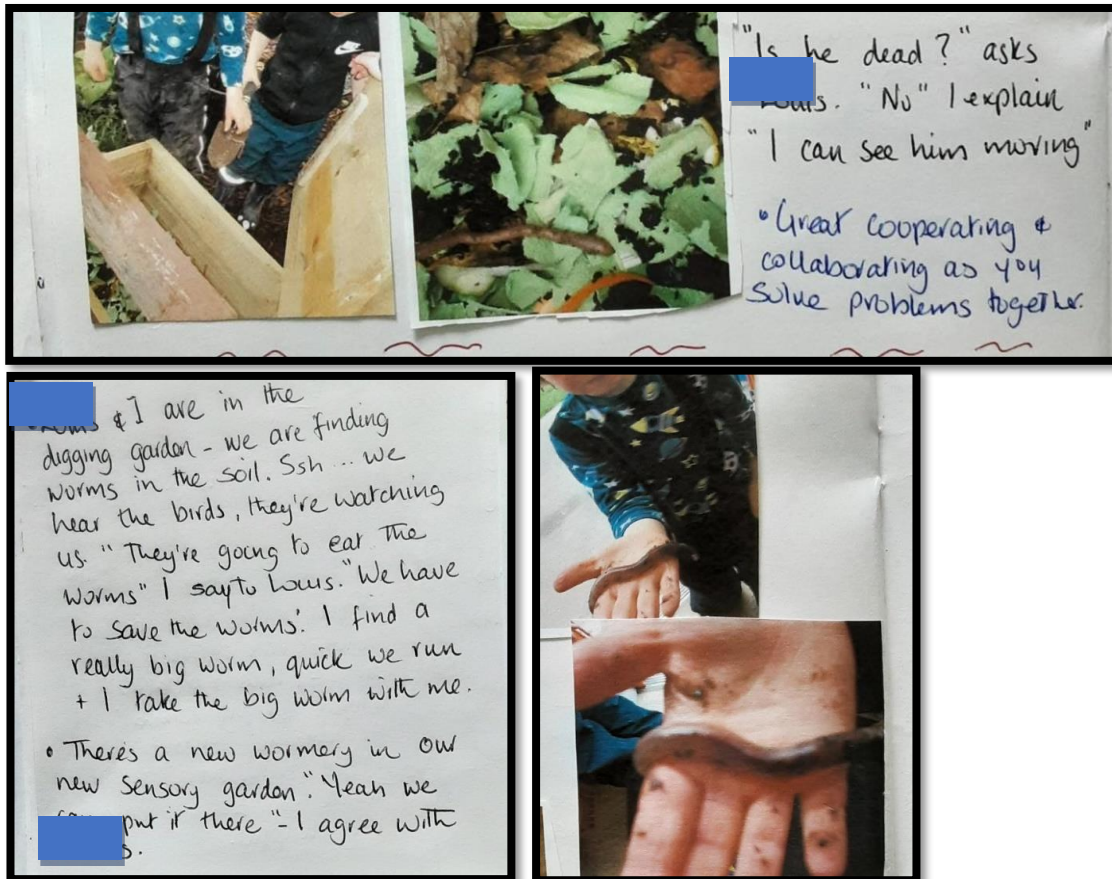 "Is he dead?" asks
"No" I explain
"I can see him moving"
• Great cooperating &
collaborating as you
solve problems together.
& I are in the
digging garden - we are finding
worms in the soil. Ssh ... we
hear the birds, they're watching
us. "They're going to eat the
worms" I say to Louis. "We have
to save the worms". I find a
really big worm, quick we run
+ I take the big worm with me.
• There's a new wormery in our
new sensory garden". "Yeah we
put it there" - I agree with